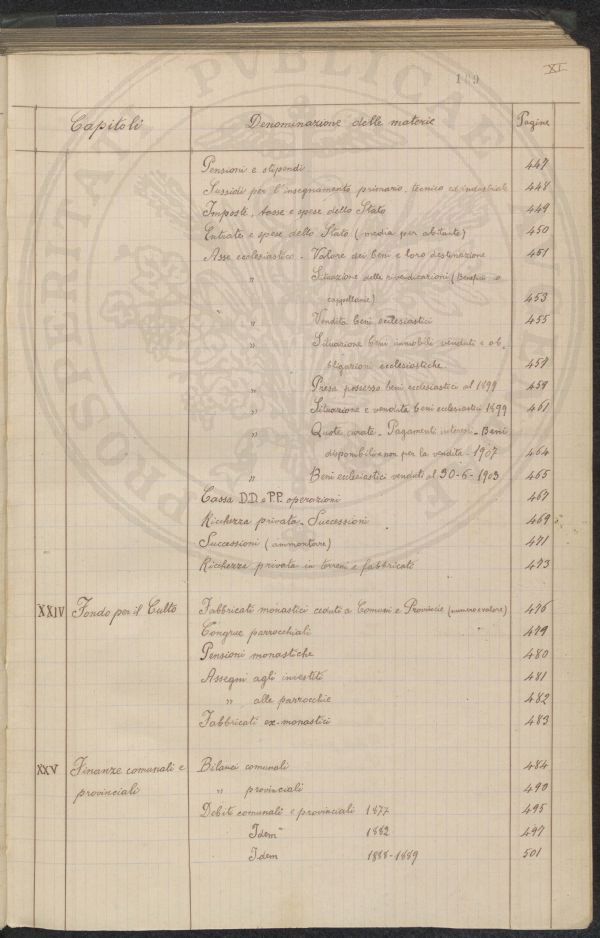 XI
189
Capitoli Denominazione delle materie Pagine
Pensioni e stipendi 447
Sussidi per l'insegnamento primario, tecnico ed industriale 448
Imposte, tasse e spese dello Stato 449
Entrate e spese dello Stato (media per abitante) 450
Asse ecclesiastico - Valore dei beni e loro destinazione 451
" Situazione delle rivendicazioni (Benefici o
cappellanie) 453
" Vendita beni ecclesiastici 455
" Situazione beni immobili venduti e ob-
bligazioni ecclesiastiche 457
" Presa possesso beni ecclesiastici al 1899 459
" Situazione e vendita beni ecclesiastici 1899 461
" Quote curate - Pagamenti interessi - Beni
disponibili e non per la vendita - 1907 464
" Beni ecclesiastici venduti al 30-6-1903 465
Cassa DD. e PP. operazioni 467
Ricchezza privata - Successioni 469
Successioni (ammontare) 471
Ricchezza privata in terreni e fabbricati 473
XXIV Fondo per il Culto Fabbricati monastici ceduti a Comuni e Provincie (numero e valore) 476
Congrue parrocchiali 479
Pensioni monastiche 480
Assegni agli investiti 481
" alle parrocchie 482
Fabbricati ex-monastici 483
XXV Finanze comunali e Bilanci comunali 484
provinciali " provinciali 490
Debiti comunali e provinciali 1877 495
Idem 1882 497
Idem 1888-1889 501